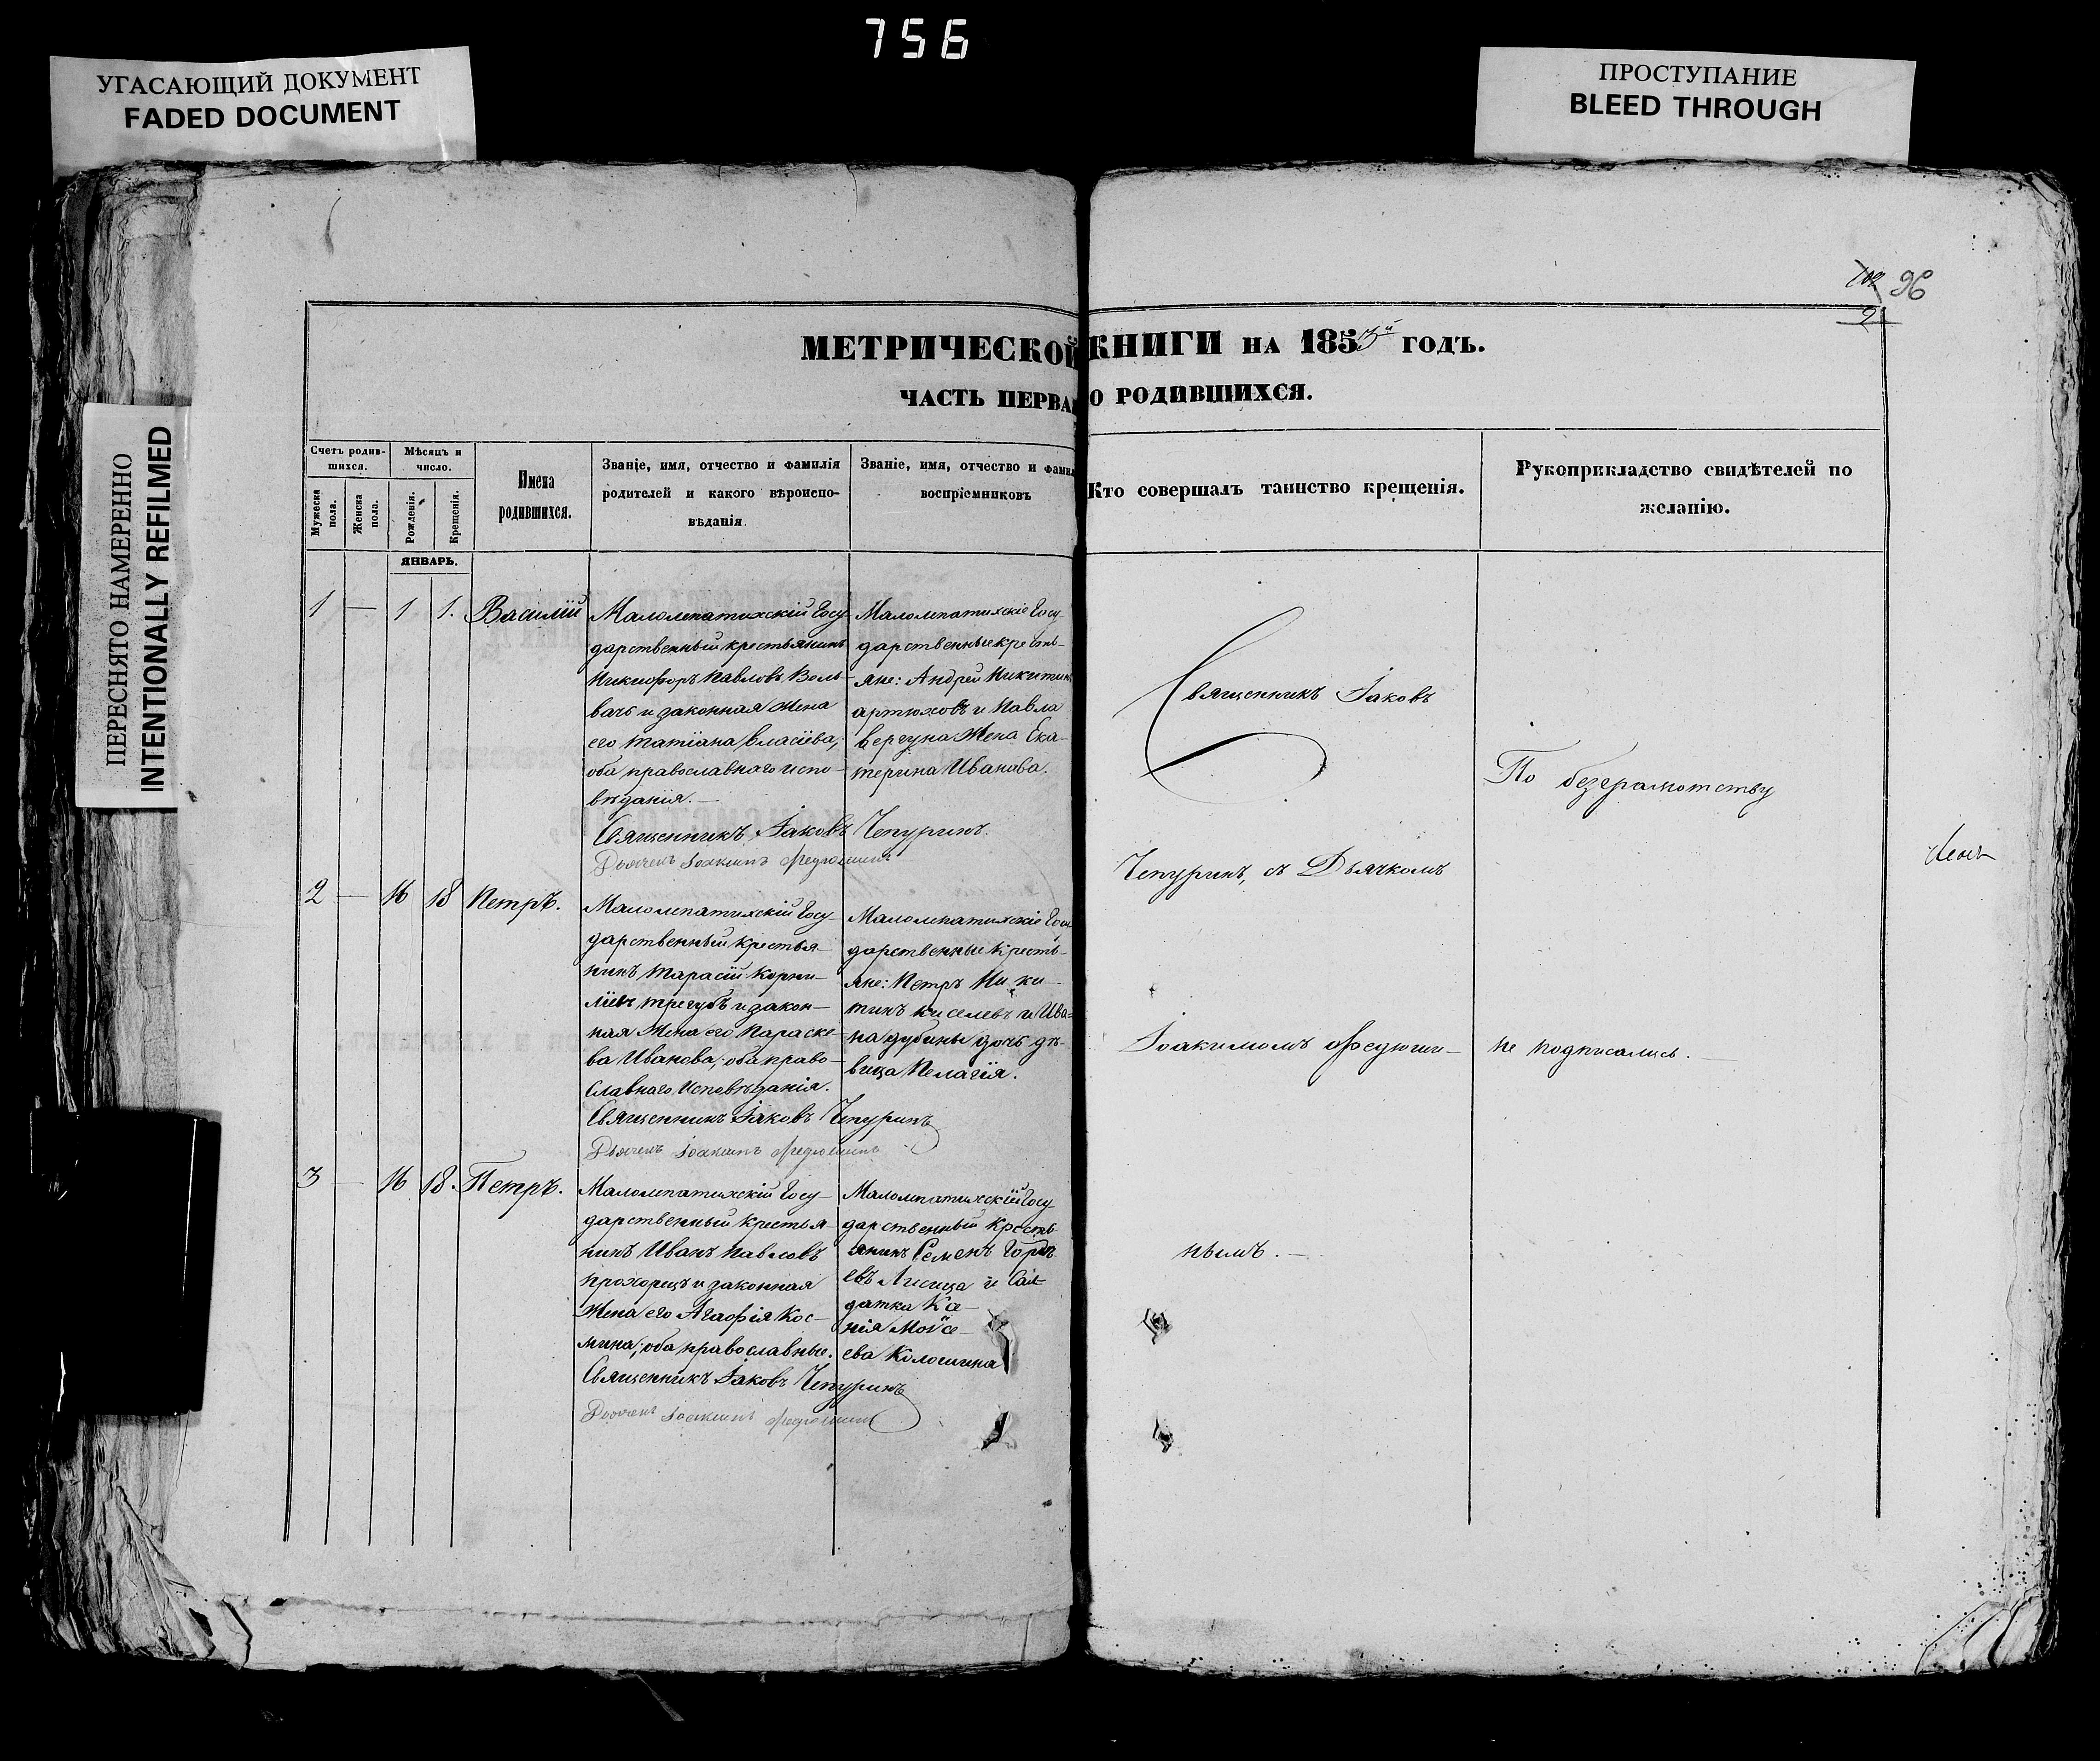 756
УГАСАЮЩИЙ ДОКУМЕНТ
FADED DOCUMENT
ПРОСТУПАНИЕ
BLEED THROUGH
ПЕРЕСНЯТО НАМЕРЕННО
INTENTIONALLY REFILMED
96
2
МЕТРИЧЕСКОЙ КНИГИ НА 1853й ГОДЪ.
ЧАСТЬ ПЕРВАЯ О РОДИВШИХСЯ.
Счетъ родив-
шихся.
Мужеска пола.
Женска пола.
Мѣсяцъ и
число.
Рожденія.
Крещенія.
Имена
родившихся.
Званіе, имя, отчество и фамилія
родителей и какого вѣроиспо-
вѣданія.
Званіе, имя, отчество и фамил
воспріемниковъ
Кто совершалъ таинство крещенія.
Рукоприкладство свидѣтелей по
желанію.
ЯНВАРЬ.
1 — 1 1. Василій
Малолепатихскій Госу-
дарственный крестьянинъ
Никифоръ Павловъ Воль-
вачь и законная жена
его Татіана Власіева;
оба православнаго испо-
вѣданія. —
Священникъ Іаковъ Чепуринъ.
Дьячекъ Іоакимъ Федюшинъ
Малолепатихскіе Госу-
дарственные кресть-
яне: Андрей Никитинъ
Артюховъ и Павла
Вергуна жена Ека-
терина Иванова.
2 — 16 18 Петръ.
Малолепатихскій Госу-
дарственный крестья-
нинъ Тарасій Корни-
ліевъ Трегубъ и закон-
ная жена его Параске-
ва Иванова; оба право-
славнаго исповѣданія.
Священникъ Іаковъ Чепуринъ
Дьячекъ Іоакимъ Федюшинъ
Малолепатихскіе Госу
дарственные кресть-
яне: Петръ Ники-
тинъ Киселевъ и Ива-
на Дубины дочь дѣ-
вица Пелагія.
3 — 16 18. Петръ.
Малолепатихскій Госу-
дарственный крестья-
нинъ Иванъ Павловъ
Прохорецъ и законная
жена его Агафія Кос-
мина; оба православные.
Священникъ Іаковъ Чепуринъ
Дьячекъ Іоакимъ Федюшинъ
Малолепатихскій Госу
дарственный кресть-
янинъ Семенъ Горде-
евъ Лисица и Сол-
датка Ка-
нія Моисе-
ева Колошина
Священникъ Іаковъ
Чепуринъ, съ Дьячкомъ
Іоакимомъ Федюши-
нымъ. —
По безграмотству
не подписались. —